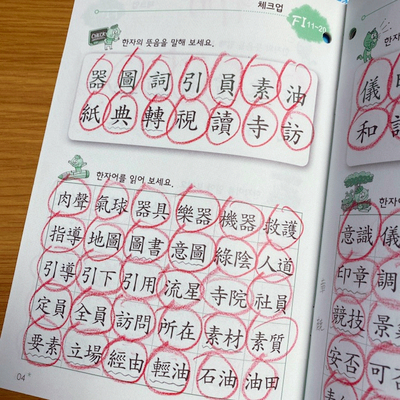 체크업
FI 11-20
한자의 뜻음을 말해 보세요.
器 圖 詞 引 員 素 油
紙 典 轉 視 讀 寺 訪
한자어를 읽어 보세요.
肉聲 氣球 器具 樂器 機器 救護
指導 地圖 圖書 意圖 綠陰 人道
引導 引下 引用 流星 寺院 社員
定員 全員 訪問 所在 素材 素質
要素 立場 經由 輕油 石油 油田
04
儀
和
한자어
意識 儀
印章 調
競技 景
安否 可否